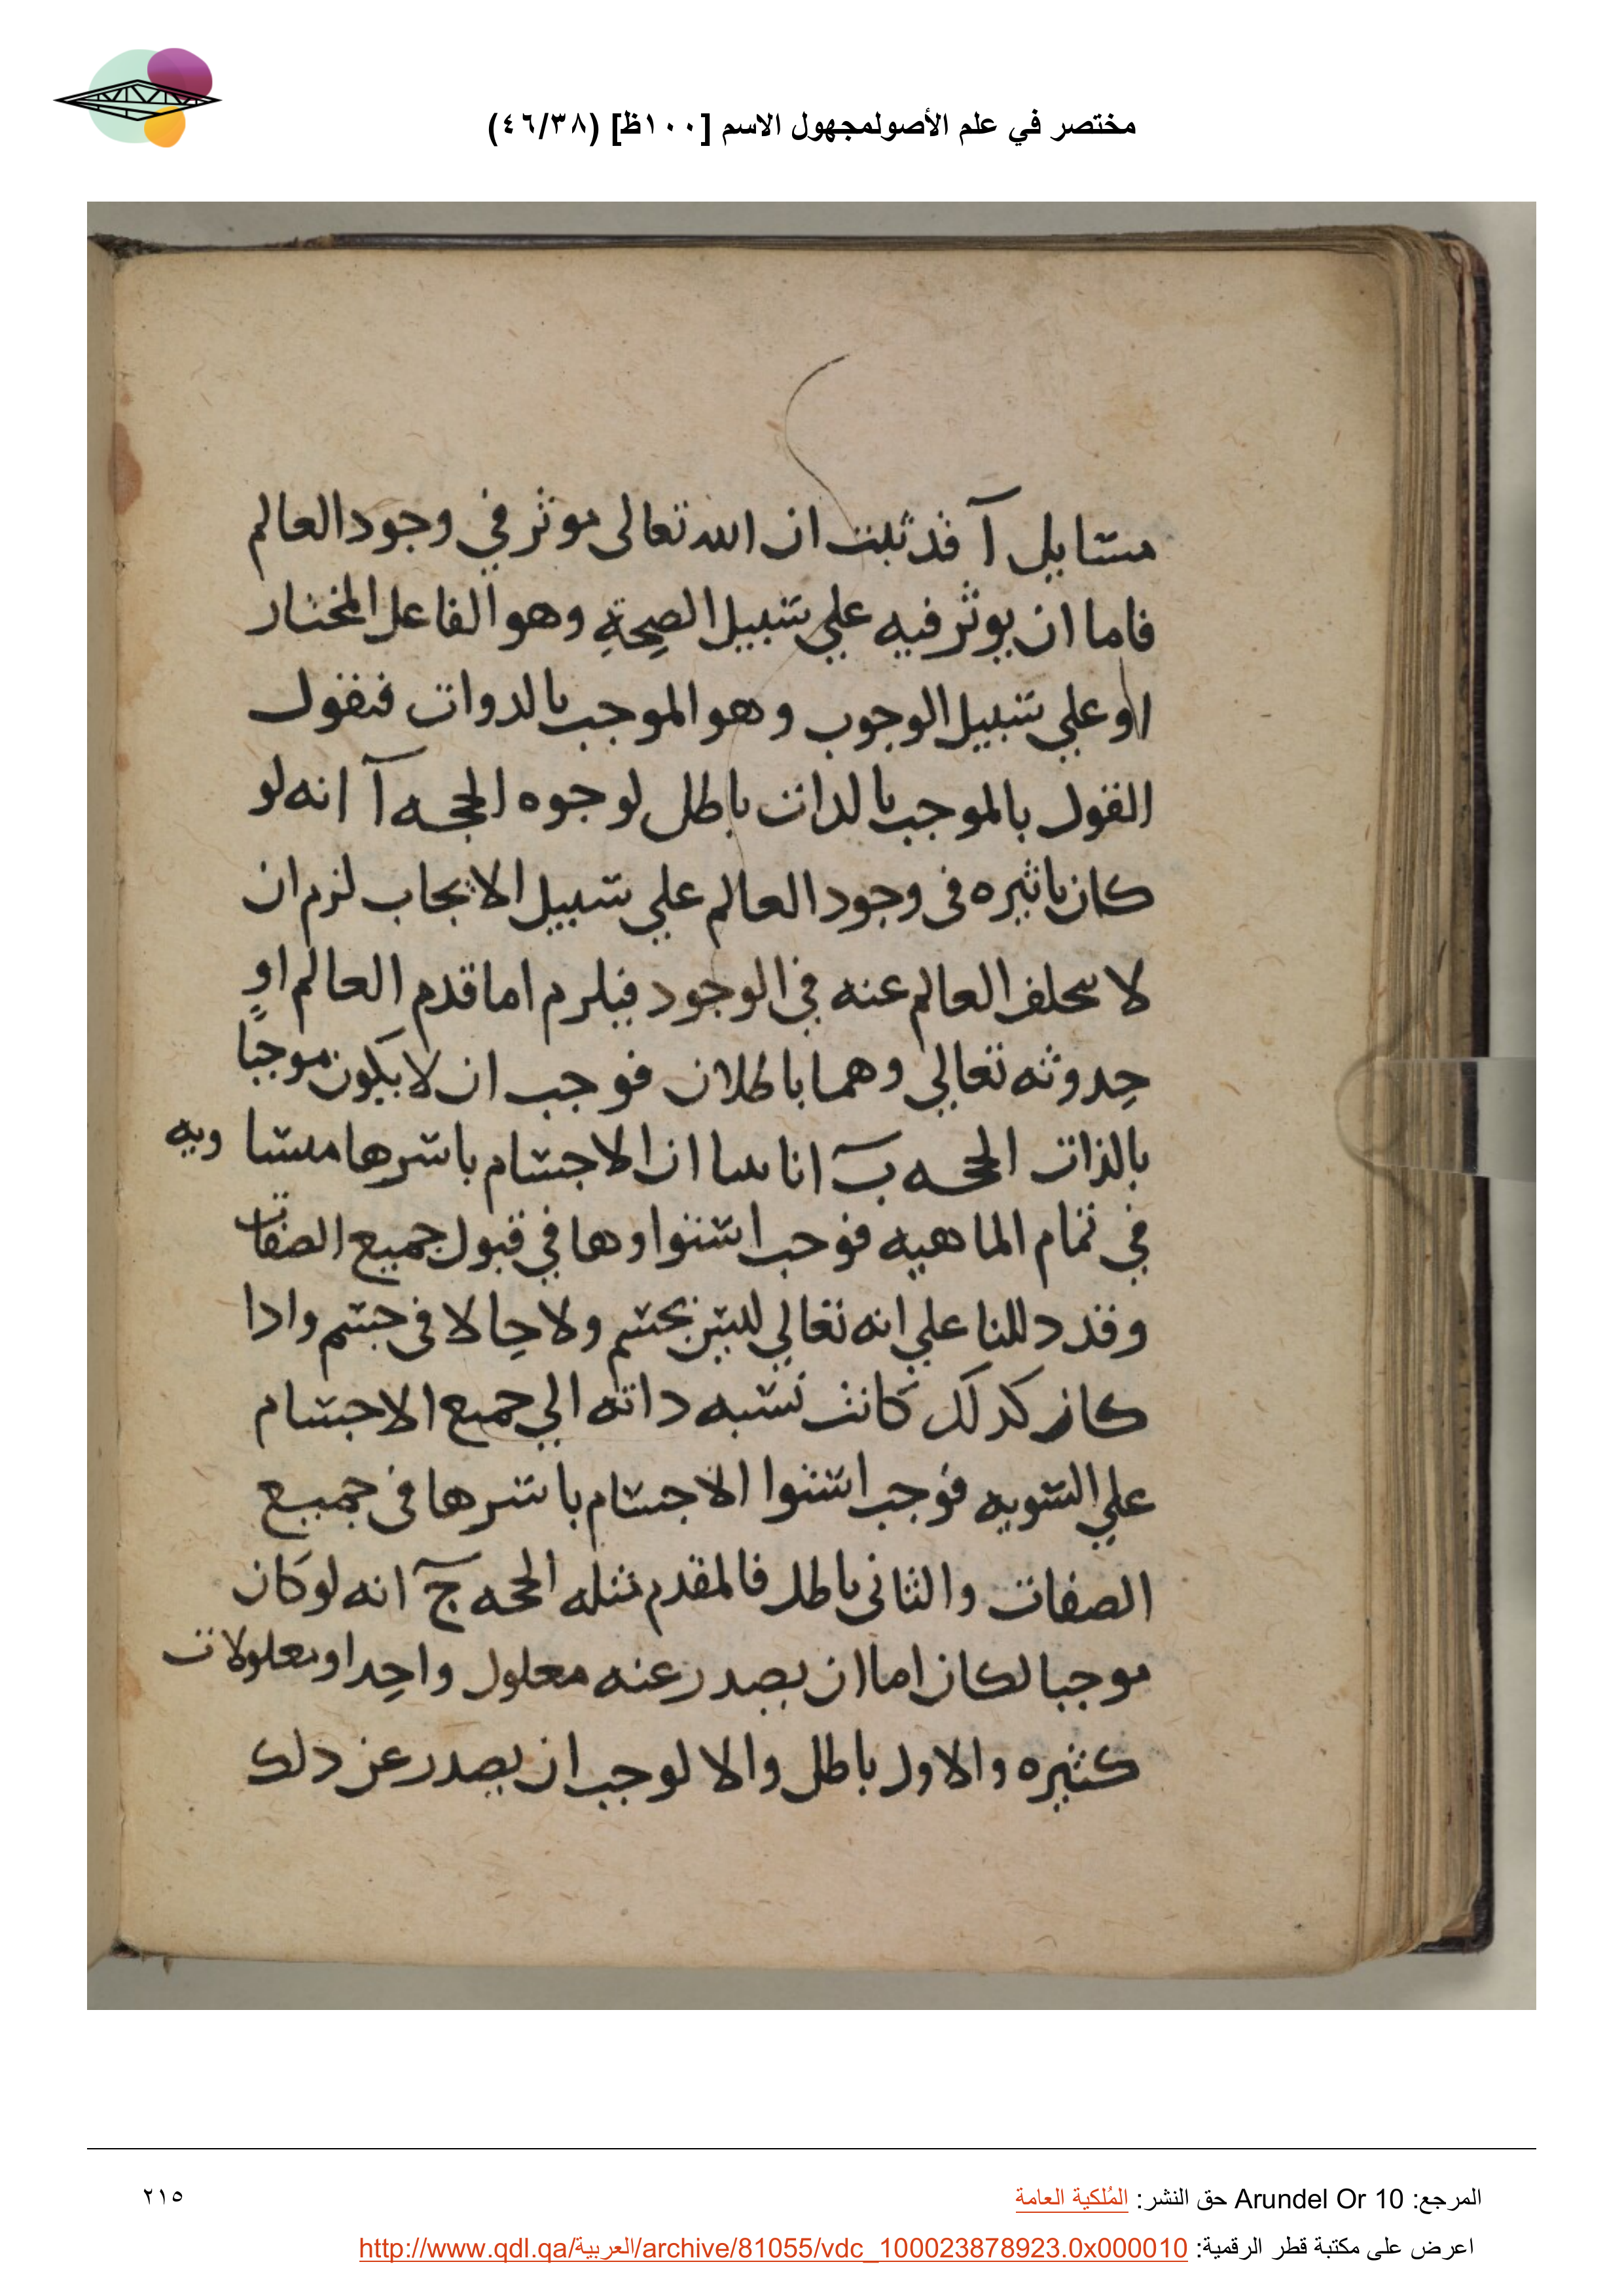 مختصر في علم الأصولمجهول الاسم [١٠٠ظ] (٤٦/٣٨)
مسايل آ قد ثبت ان الله تعالى موثر في وجود العالم
فاما ان يوثر فيه علي سبيل الصحة وهو الفاعل المختار
او علي سبيل الوجوب وهو الموجب بالدوات فنقول
القول بالموجب بالدات باطل لوجوه الحجه آ انه لو
كان تاثيره في وجود العالم علي سبيل الايجاب لزم ان
لا يتخلف العالم عنه في الوجود فيلزم اما قدم العالم او
حدوثه تعالي وهما باطلان فوجب ان لا يكون موجبا
بالذات الحجه ب انا بينا ان الاجسام باسرها متساويه
في تمام الماهيه فوجب استواوها في قبول جميع الصفات
وقد دللنا علي انه تعالي ليس بجسم ولا حالا في جسم وادا
كان كدلك كانت نسبه داته الي جميع الاجسام
علي السويه فوجب استوا الاجسام باسرها في جميع
الصفات والثاني باطل فالمقدم مثله الحجه ج انه لو كان
موجبا لكان اما ان يصدر عنه معلول واحدا ومعلولات
كثيره والاول باطل والا لوجب ان يصدر عن دلك
المرجع: Arundel Or 10 حق النشر: المُلكية العامة
٢١٥
اعرض على مكتبة قطر الرقمية: http://www.qdl.qa/العربية/archive/81055/vdc_100023878923.0x000010